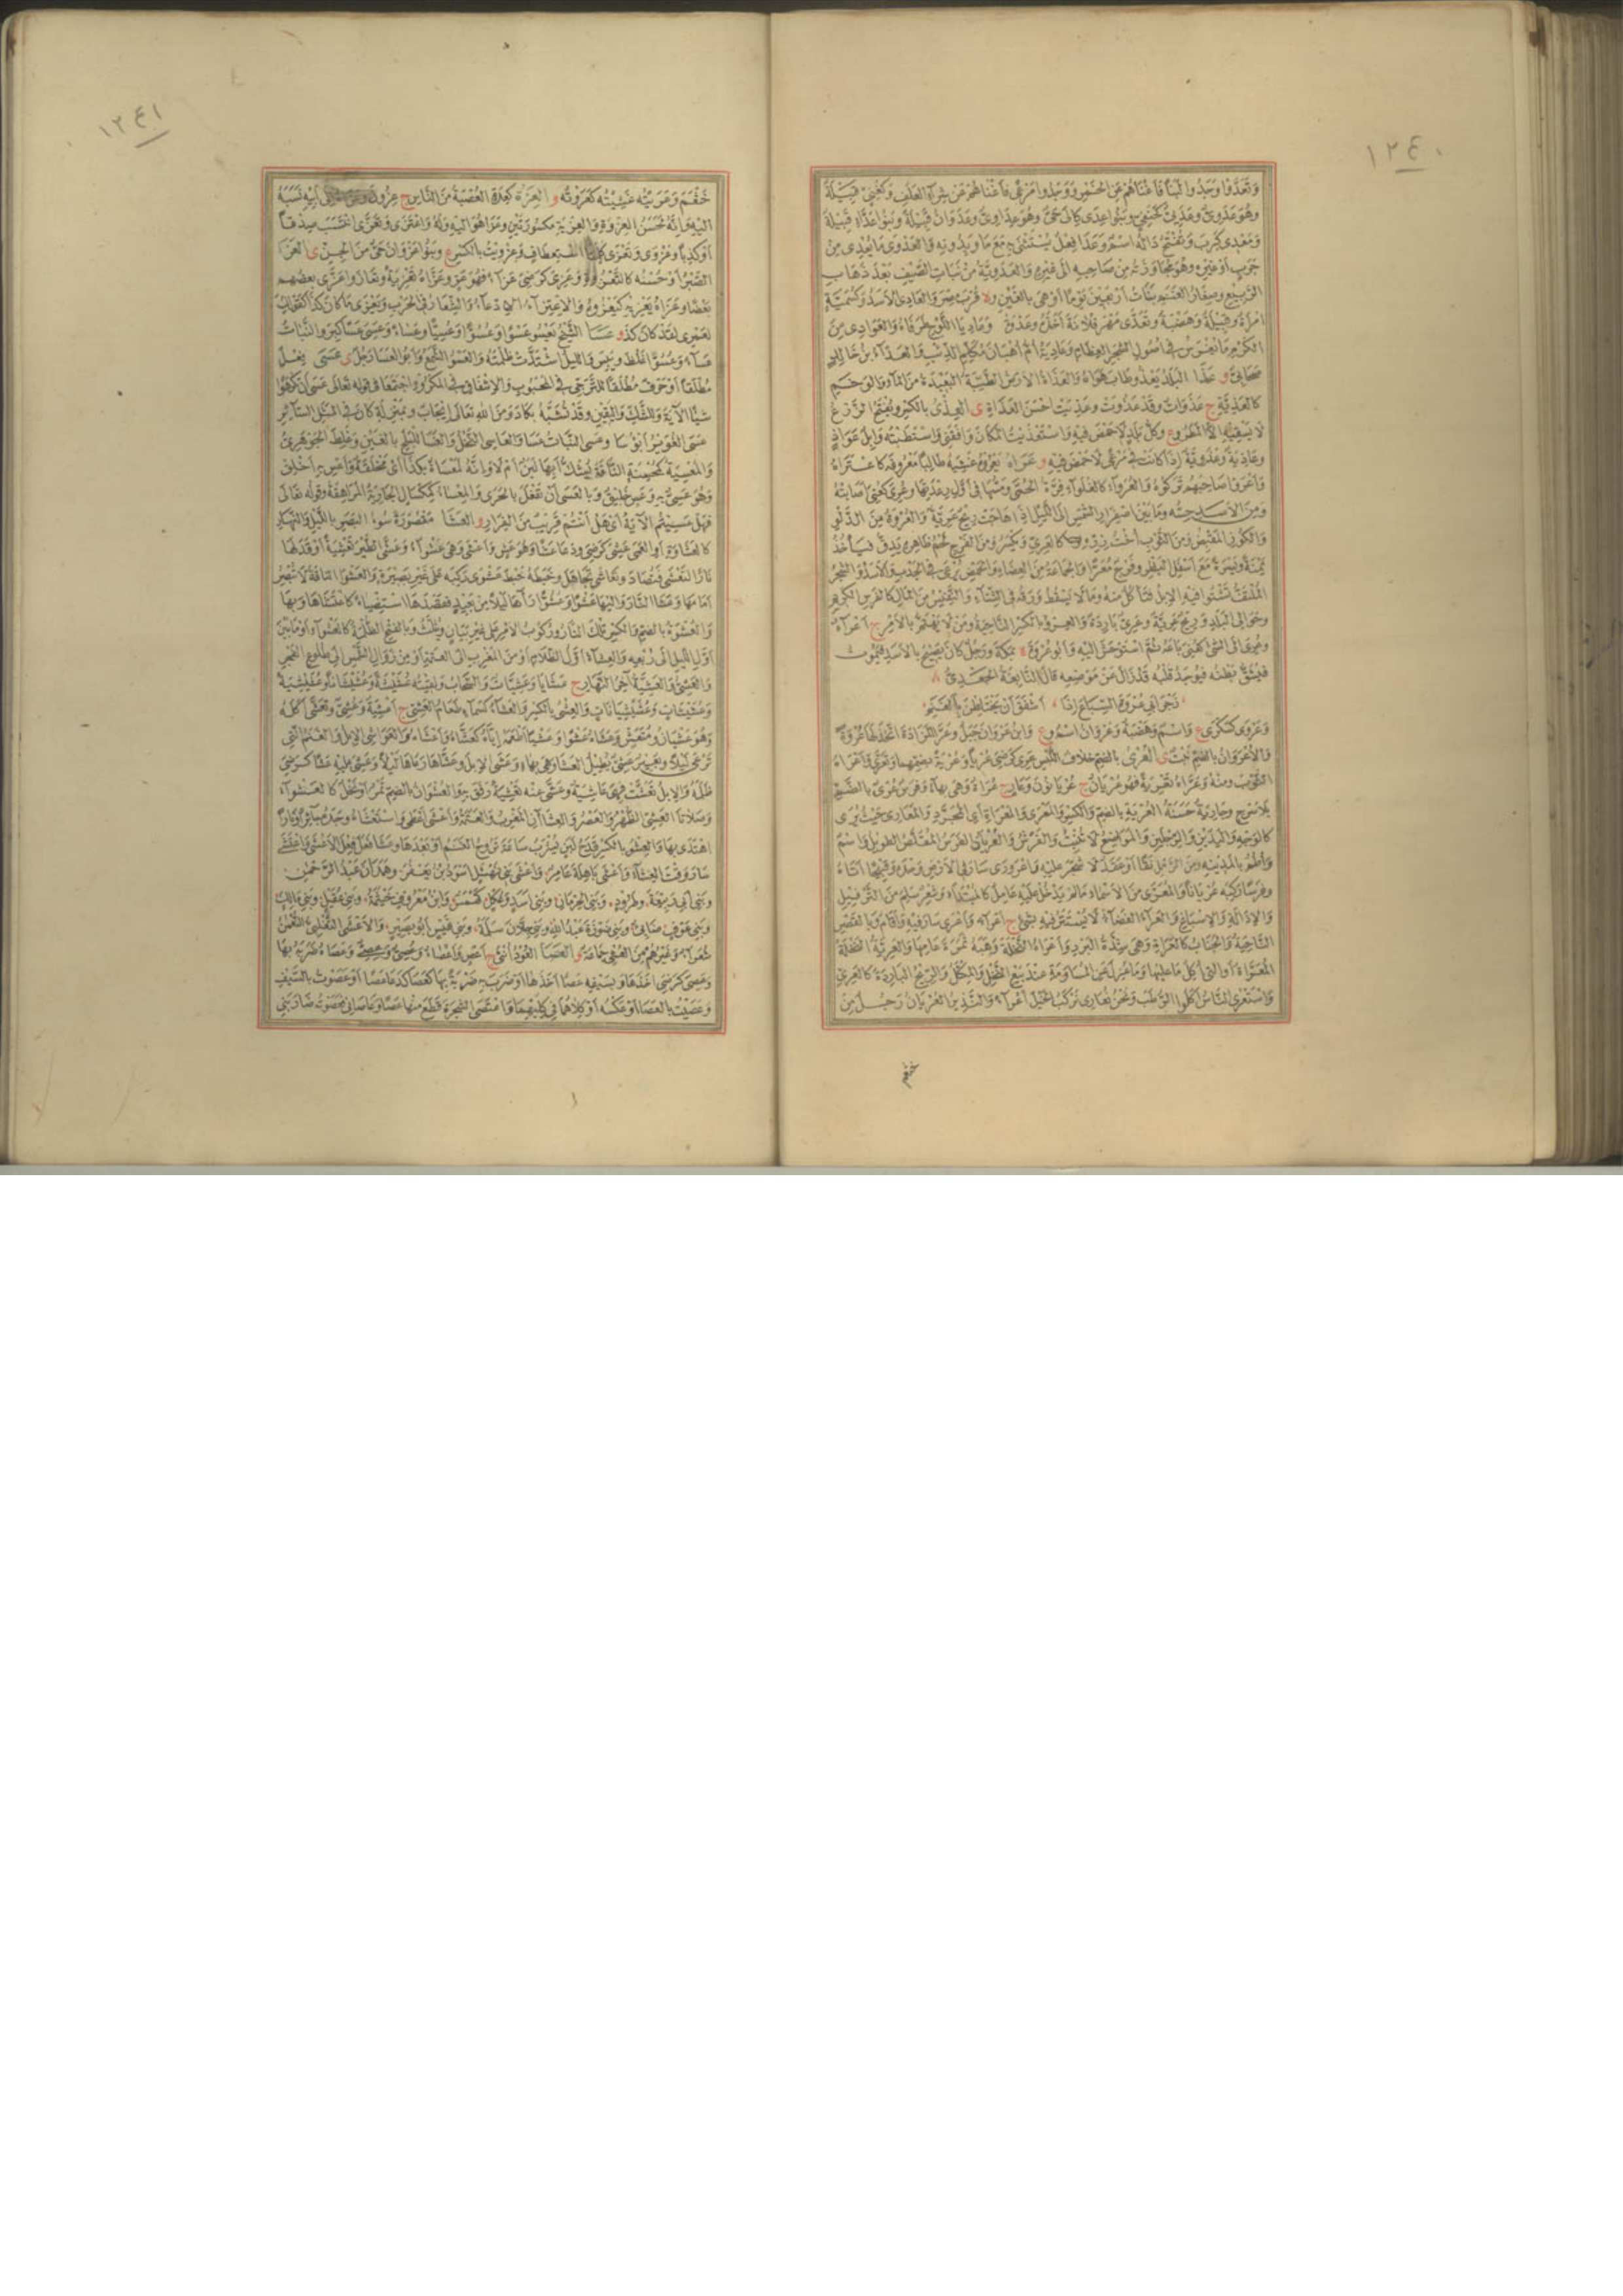 ١٢٤٠
وتعدوا وجدوا لبنا فأغناهم عن الخمر ووجدوا مرعى فأغناهم عن شراء العلف وكغني قبيلة
وهو عدوي
ومعدي كرب وتفتح داله اسم وعدا فعل يستثنى به مع ما وبدونه والعدوى ما يعدي من
جرب أو غيره وهو مجاوزته من صاحبه إلى غيره والعدوية من نبات الصيف بعد ذهاب
الربيع وصغار الغنم بنات أربعين يوما أو هي بالغين وة قرب مصر والعادي الأسد
امرأة وقبيلة وهضبة وتعدى مهر فلانة أخذه
الكرم ما يغرس في أصول الشجر العظام وعادية أم أهبان مكلم الذئب والعداء بن خالد
صحابي و عذا البلد يعذو طاب هواه والعذاة الأرض الطيبة البعيدة من الماء والوخم
كالعذية ج عذوات وقد عذوت وعذيت أحسن العذاة ى العذي بالكسر ويفتح الزرع
لا يسقيه إلا المطر وع وكل بلد لا حمض فيه واستعذيت المكان وافقني واستطبته وإبل عواذ
وعاذية وعذوية إذا كانت في مرعى لا حمض فيه و عراه يعروه غشيه طالبا معروفه كاعتراه
وأعروا صاحبهم تركوه والعرواء كالغلواء قرة الحمى ومسها في أول رعدتها وعري كعني أصابته
ومن الأسد حسه وما بين اصفرار الشمس إلى الليل إذا هاجت ريح عرية والعروة من الدلو
والكوز المقبض ومن الثوب أخت زره كالعري ويكسر ومن الفرج لحم ظاهره يدق فيأخذ
يمنة ويسرة مع أسفل البظر وفرج معرى والجماعة من العضاه والحمض يرعى في الجدب والأسد والشجر
الملتف تشتو فيه الإبل فتأكل منه وما لا يسقط ورقه في الشتاء والنفيس من المال كالفرس الكريم
وحوالي البلد وريح عرية وعري باردة والعرو بالكسر الناحية ومن لا يهتم بالأمر ج أعراء
وعري إلى الشيء كعني باعه ثم استوحش إليه وأبو عروة ة بمكة ورجل كان يصيح بالأسد فيموت
فيشق بطنه فيوجد قلبه قد زال عن موضعه قال النابغة الجعدي
زجر أبي عروة السباع إذا أشفق أن يختلطن بالغنم
وعروى كسكرى ع واسم وهضبة وعروان اسم وع وابن عروان جبل وعرى المزادة اتخذ لها عروة
والأعروان بالضم نبت ى العري بالضم خلاف اللبس عري كرضي عريا وعرية بضمهما وتعرى وأعراه
الثوب ومنه وعراه تعرية فهو عريان ج عريانون وعار ج عراة وهي بهاء وفرس عري بالضم
بلا سرج وجارية حسنة العرية بالضم والكسر والمعرى والمعراة أي المجرد والمعاري حيث يرى
كالوجه واليدين والرجلين والمواضع لا تنبت والفرش والعريان الفرس المقلص الطويل واسم
وأطم بالمدينة ومن الرمل نقا أو عقد لا شجر عليه واعرورى سار في الأرض وحده وقبيحا أتاه
وفرسا ركبه عريانا والمعرى من الأسماء ما لم يدخل عليه عامل كالمبتدإ وشعر سلم من الترفيل
والإذالة والإسباغ والعراء الفضاء لا يستتر فيه بشيء ج أعراء وأعرى سار فيه وأقام وبالقصر
الناحية والجناب كالعراة وهي شدة البرد وأعراه النخلة وهبه ثمرة عامها والعرية النخلة
المعراة أو التي أكل ما عليها وما عزل عن المساومة عند بيع النخل والمكتل والريح الباردة كالعري
واستعرى الناس أكلوا الرطب ونحن نعاري نركب الخيل أعراء والنذير العريان رجل من
خثعم
١٢٤١
خثعم وعريته غشيته كعروته و العزة كعدة العصبة من الناس ج عزون إلى أبيه نسبه
إليه وإنه لحسن العزوة والعزية مكسورتين وعزا هو إليه وله واعتزى وتعزى انتسب صدقا
أو كذبا وعزوى وتعزى استعطاف وعزويت بالكسر ع وبنو عزوان حي من الجن ى العزاء
الصبر أو حسنه كالتعزوة وعزي كرضي عزاء فهو عز وعزاه تعزية وتعازوا عزى بعضهم
بعضا وعزاه يعزيه كيعزوه والاعتزاء الادعاء والشعار في الحرب ويعزى ما كان كذا كقولك
لعمري لقد كان كذا و عسا الشيخ يعسو عسوا وعسوا وعسيا وعساء وعسي عسا كبر والنبات
عساء وعسوا غلظ ويبس والليل اشتدت ظلمته والعسو الشمع وأبو العسا رجل ى عسى فعل
مطلقا أو حرف مطلقا للترجي في المحبوب والإشفاق في المكروه واجتمعا في قوله تعالى عسى أن تكرهوا
شيئا الآية وللشك واليقين وقد تشبه بكاد ومن الله تعالى إيجاب وبمنزلة كان في المثل السائر
عسى الغوير أبؤسا وعسى النبات عسا والعاسي النخل والعسا للبلح بالغين وغلط الجوهري
والمعسية كمحسنة الناقة يشك أبها لبن أم لا وإنه لمعساة بكذا أي مخلقة وأعس به أخلق
وهو عسي به وعس خليق وبالعسى أن تفعل بالحرى والمعساء كمكسال الجارية المراهقة وقوله تعالى
فهل عسيتم الآية أي هل أنتم قريب من الفرار و العشا مقصورة سوء البصر بالليل والنهار
كالعشاوة أو العمى عشي كرضي ودعا عشا وهو عش وأعشى وهي عشواء وعشى الطير تعشية أوقد لها
نارا لتعشى فتصاد وتعاشى تجاهل وخبطه خبط عشوى ركبه على غير بصيرة والعشواء الناقة لا تبصر
أمامها وعشا النار وإليها عشوا وعشوا رآها ليلا من بعيد فقصدها مستضيئا كاعتشاها وبها
والعشوة بالضم والكسر تلك النار وركوب الأمر على غير بيان ويثلث وبالفتح الظلمة كالعشواء أو ما بين
أول الليل إلى ربعه والعشاء أول الظلام أو من المغرب إلى العتمة أو من زوال الشمس إلى طلوع الفجر
والعشي والعشية آخر النهار ج عشايا وعشيات والسحاب ولقيته عشيشة وعشيشانا وعشيشية
وعشيشات وعشيشيانات والعشي بالكسر والعشاء كسماء طعام العشي ج أعشية وعشي وتعشى أكله
وهو عشيان ومتعش وعشاه عشوا وعشيا أطعمه إياه كعشاه وأعشاه والعواشي الإبل والغنم التي
ترعى ليلا وبعير عشي يطيل العشاء وهي بهاء وعشى الإبل وعشاها رعاها ليلا وعشي عليه عشا كرضي
ظلمه والإبل تعشت فهي عاشية وعشى عنه تعشية رفق به والعشوان بالضم تمر أو نخل كالعشواء
وصلاتا العشي الظهر والعصر والعشاءان المغرب والعتمة وأعشى أعطى واستعشاه وجده جائرا ونارا
اهتدى بها والعشو بالكسر قدح لبن يشرب ساعة تروح الغنم أو بعدها وعشا فعل فعل الأعشى واعتشى
سار وقت العشاء وأعشى باهلة عامر وأعشى بني نهشل أسود بن يعفر وهمدان عبد الرحمن
وبني أبي ربيعة وطرود وبني الحرماز وبني أسد وعكل كهمس وابن معروف خيثمة وبني عقيل وبني مالك
وبني عوف ضابئ وبني ضوزة عبد الله وبني جلان سلمة وبني قيس أبو بصير والأعشى التغلبي النعمان
شعراء وغيرهم من العشي جماعة و العصا العود أنثى ج أعص وأعصاء وعصي وعصي وعصاه ضربه بها
وعصي كرضي أخذها وبسيفه عصا أخذها أو ضرب به ضربه بها كعصا كدعا عصا أو عصوت بالسيف
وعصيت بالعصا أو عكسه أو كلاهما في كليهما واعتصى الشجرة قطع منها عصا وعاصاني فعصوته ضاربني